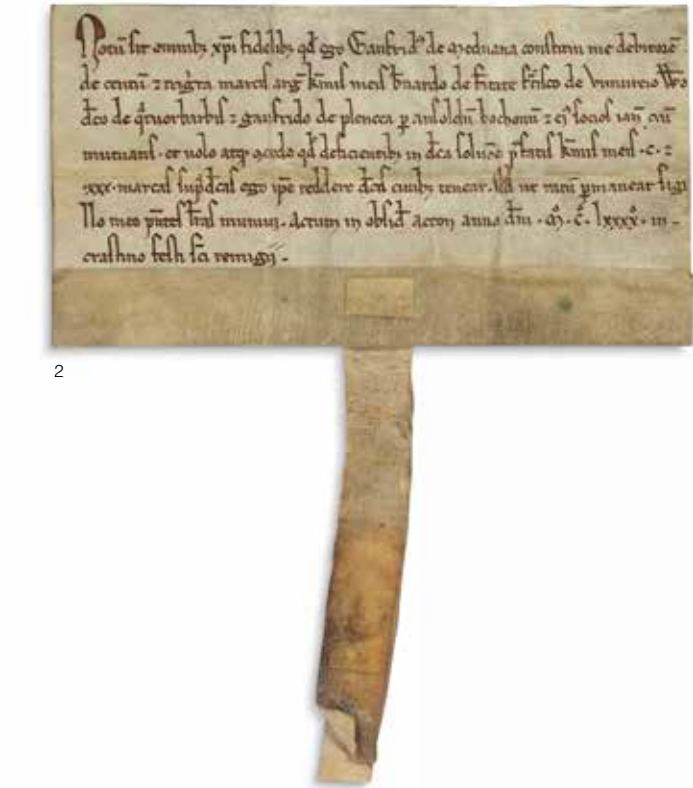 Notū sit omnibz xp̄i fidelibz qđ ego Gaufrid' de Meduana constitui me debitorē
de centū ⁊ trigīta marcis arg̃ karis̃ meis b̃nardo de
dc̄o de q̃tuorbarbis ⁊ gaufrido de plencea p̱ ansoldū bochonū ⁊ ei' socios ian̄ cui
mutuatis · et uolo atq; ↄcedo qđ deficientibz in dc̄a solut̄oe p̃fatis karis̃ meis · c · ⁊
xxx · marcas sup̃dc̄as ego ip̄e reddere dc̄is ciuibz tenear · Et ne ratū p̱maneat sigi
llo meo p̃ntes l̃ras muniui · Actum in obsid̄ accon anno dn̄i · Mͦ · Cͦ · lxxxxͦ · in
crastino festi sc̄i remigii ·
2